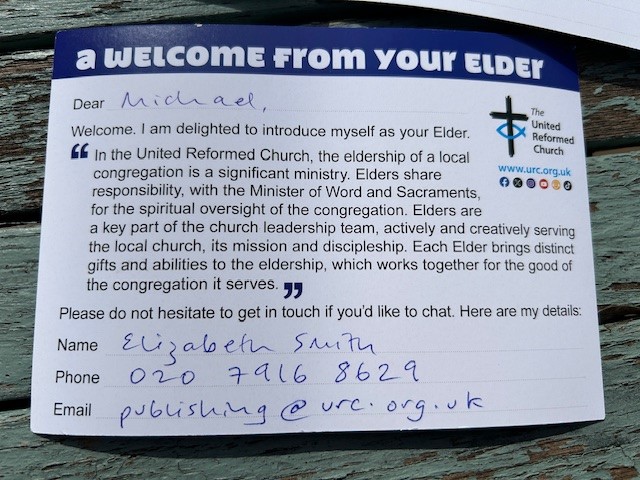 a WELCOME FROM YOUR ELDER
Dear Michael,
The
United
Reformed
Church
www.urc.org.uk
Welcome. I am delighted to introduce myself as your Elder.
“ In the United Reformed Church, the eldership of a local
congregation is a significant ministry. Elders share
responsibility, with the Minister of Word and Sacraments,
for the spiritual oversight of the congregation. Elders are
a key part of the church leadership team, actively and creatively serving
the local church, its mission and discipleship. Each Elder brings distinct
gifts and abilities to the eldership, which works together for the good of
the congregation it serves. ”
Please do not hesitate to get in touch if you'd like to chat. Here are my details:
Name Elizabeth Smith
Phone 020 7916 8629
Email publishing@urc.org.uk